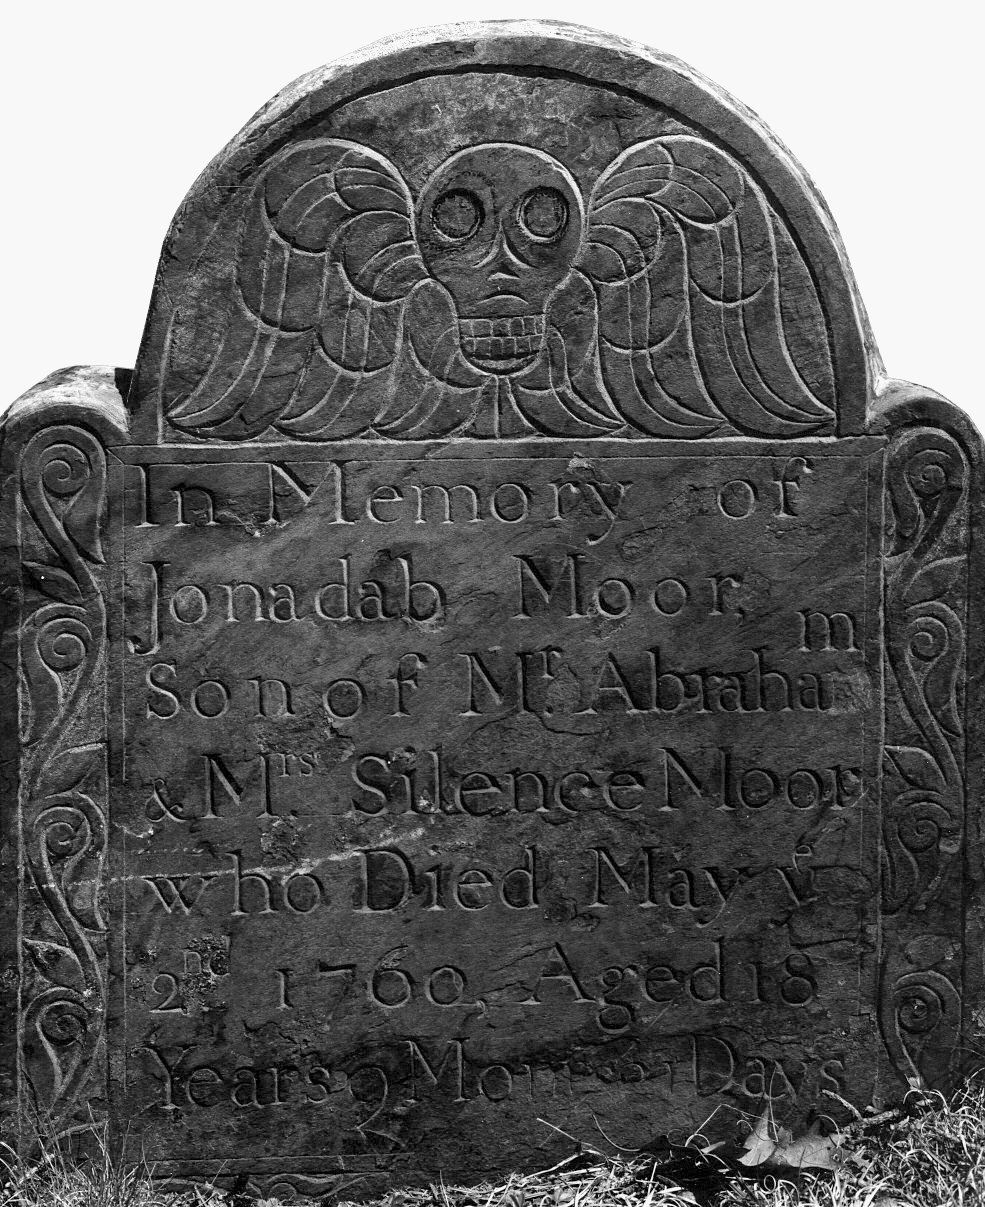 In Memory of
Jonadab Moor,
Son of Mr Abraham
& Mrs. Silence Moor
who Died May ye
2nd 1760, Aged 18
Years 2 Mon Days